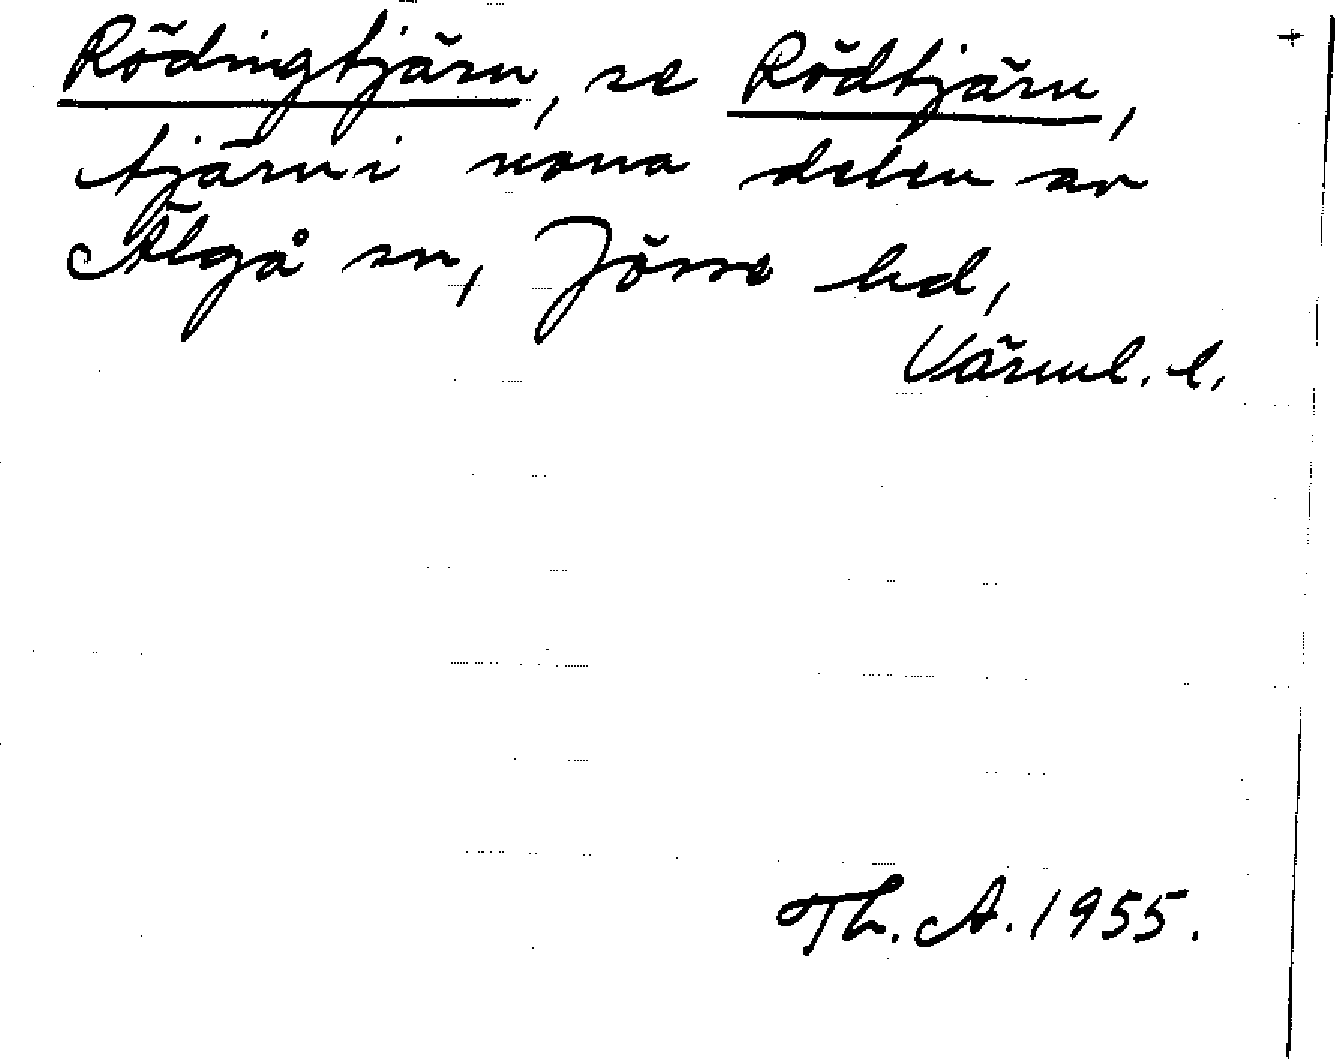 Rödingtjärn, se Rödtjärn, +
tjärn i norra delen av
Älgå sn, Jösse hd,
Värml. l.
Th. A. 1955.